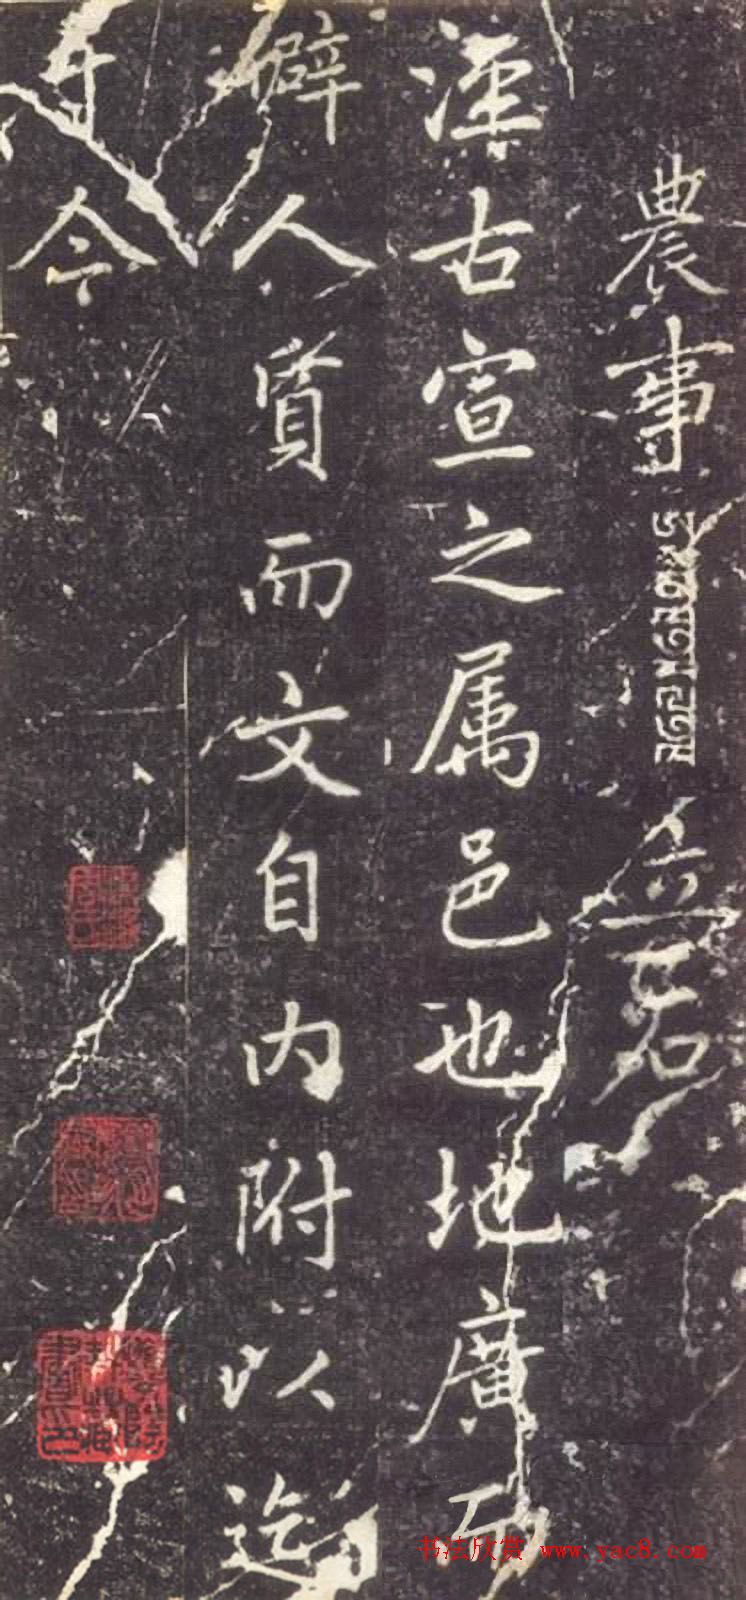 農事
漢古宣之属邑也地廣而
僻人質而文自内附以迄
于今
书法欣赏 www.yac8.com